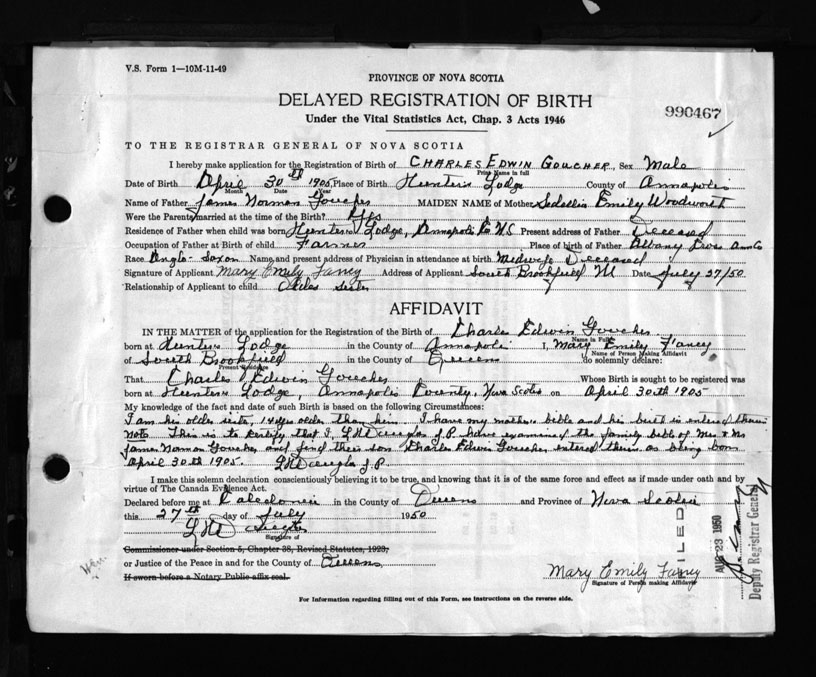 V.S. Form 1—10M-11-49
PROVINCE OF NOVA SCOTIA
DELAYED REGISTRATION OF BIRTH
990467
Under the Vital Statistics Act, Chap. 3 Acts 1946
TO THE REGISTRAR GENERAL OF NOVA SCOTIA
I hereby make application for the Registration of Birth of CHARLES EDWIN GOUCHER, Sex Male
Print Name in full
Date of Birth April 30th 1905, Place of Birth Hunters Lodge County of Annapolis
Month Date Year
Name of Father James Norman Goucher MAIDEN NAME of Mother Emily Woodworth
Were the Parents married at the time of the Birth? Yes
Residence of Father when child was born Hunters Lodge, Annapolis Co N.S. Present address of Father Deceased
Occupation of Father at Birth of child Farmer Place of birth of Father Albany Ann Co
Race Anglo-Saxon Name and present address of Physician in attendance at birth Midwife Deceased
Signature of Applicant Mary Emily Fancy Address of Applicant South Brookfield NS Date July 27/50
Relationship of Applicant to child Older Sister
AFFIDAVIT
IN THE MATTER of the application for the Registration of the Birth of Charles Edwin Goucher
Name in Full
born at Hunters Lodge in the County of Annapolis I, Mary Emily Fancy
Name of Person Making Affidavit
of South Brookfield in the County of Queens do solemnly declare:
Present Residence
That Charles Edwin Goucher Whose Birth is sought to be registered was
born at Hunters Lodge, Annapolis County, Nova Scotia on April 30th 1905
My knowledge of the fact and date of such Birth is based on the following Circumstances:
I am his older sister, 14 years older than him. I have my mothers bible and his birth is entered therein
Note This is to certify that I, J.P. have examined the family bible of Mrs & Mr
James Norman Goucher and find their son Charles Edwin Goucher entered therein as being born
April 30th 1905. J.P.
I make this solemn declaration conscientiously believing it to be true, and knowing that it is of the same force and effect as if made under oath and by
virtue of The Canada Evidence Act.
Declared before me at Caledonia in the County of Queens and Province of Nova Scotia
this 27th day of July 1950
Signature of
Commissioner under Section 5, Chapter 38, Revised Statutes, 1923,
or Justice of the Peace in and for the County of Queens
If sworn before a Notary Public affix seal.
Mary Emily Fancy
Signature of Person making Affidavit
FILED
AUG 23 1950
Deputy Registrar General
For Information regarding filling out of this Form, see instructions on the reverse side.